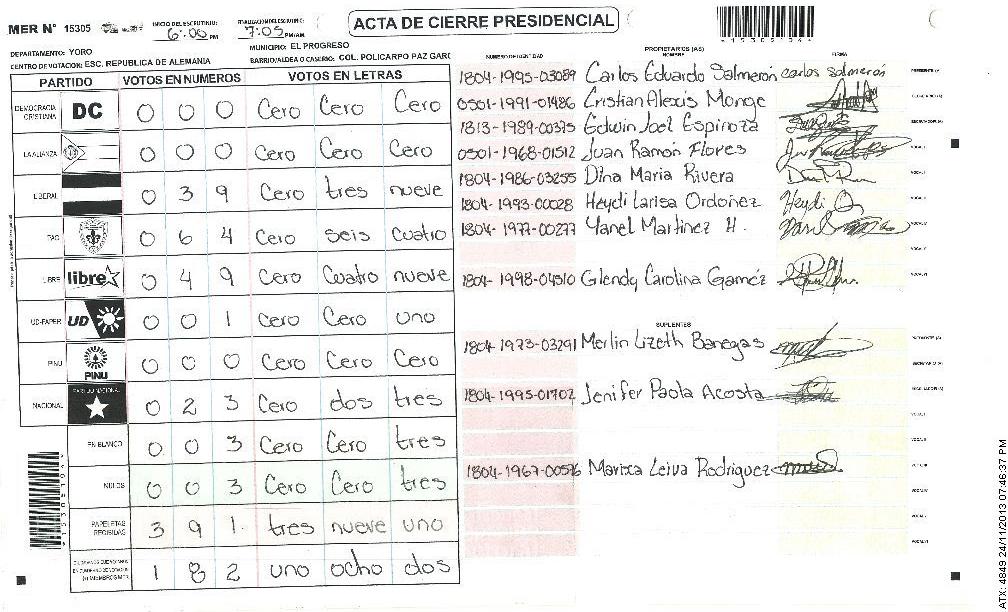 ACTA DE CIERRE PRESIDENCIAL
MER Nº 15305
INICIO DEL ESCRUTINIO: 6:00 PM
FINALIZACION DEL ESCRUTINIO: 7:05 PM/AM
DEPARTAMENTO: YORO
MUNICIPIO: EL PROGRESO
CENTRO DE VOTACION: ESC. REPUBLICA DE ALEMANIA
BARRIO/ALDEA O CASERIO: COL. POLICARPO PAZ GARC
PARTIDO VOTOS EN NUMEROS VOTOS EN LETRAS
DEMOCRACIA CRISTIANA DC 0 0 0 Cero Cero Cero
LA ALIANZA 0 0 0 Cero Cero Cero
LIBERAL 0 3 9 Cero tres nueve
PAC 0 6 4 Cero seis cuatro
LIBRE libre 0 4 9 Cero Cuatro nueve
UD-FAPER UD 0 0 1 Cero Cero uno
PINU PINU 0 0 0 Cero Cero Cero
NACIONAL PARTIDO NACIONAL 0 2 3 Cero dos tres
EN BLANCO 0 0 3 Cero Cero tres
NULOS 0 0 3 Cero Cero tres
PAPELETAS RECIBIDAS 3 9 1 tres nueve uno
1 8 2 uno ocho dos
NUMERO DE IDENTIDAD PROPIETARIOS (AS) NOMBRE FIRMA
1804-1995-03089 Carlos Eduardo Salmerón carlos salmerón
0501-1991-01486 Cristian Alexis Monge
1813-1989-00375 Edwin Joel Espinoza
0501-1968-01512 Juan Ramón Flores
1804-1986-03255 Dina Maria Rivera
1804-1993-00028 Heydi Larisa Ordoñez Heydi O
1804-1977-00277 Yanel Martinez H.
1804-1998-04510 Glendy Carolina Gaméz
SUPLENTES
1804-1973-03291 Merlin Lizeth Banegas
1804-1995-01702 Jenifer Paola Acosta
1804-1967-00576 Marixa Leiva Rodriguez
ATX: 4849 24/11/2013 07:46:37 PM